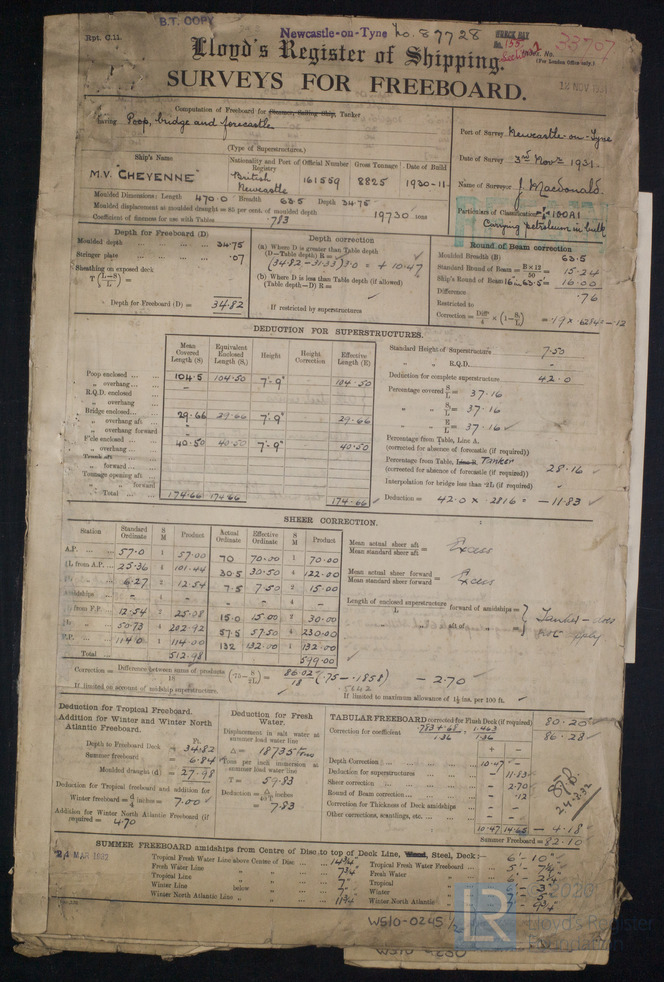 B.T. COPY
Rpt. C.11.
Newcastle-on-Tyne No. 87728
No. 155
33707
Lloyd's Register of Shipping.
(For London Office only.)
SURVEYS FOR FREEBOARD.
12 NOV 1931
Computation of Freeboard for Steamer, Sailing Ship, Tanker
having Poop, bridge and forecastle
(Type of Superstructures.)
Port of Survey Newcastle-on-Tyne
Date of Survey 3rd Novr 1931
Name of Surveyor J. Macdonald.
Particulars of Classification +100A1
Carrying petroleum in bulk
Ship's Name Nationality and Port of Registry Official Number Gross Tonnage Date of Build
M.V. "CHEYENNE" British Newcastle 161559 8825 1930-11
Moulded Dimensions: Length 470.0 Breadth 63.5 Depth 34.75
Moulded displacement at moulded draught = 85 per cent. of moulded depth 19730 tons
Coefficient of fineness for use with Tables .783
Depth for Freeboard (D)
Moulded depth 34.75
Stringer plate .07
Sheathing on exposed deck
T (L-S / L) =
Depth for Freeboard (D) = 34.82
Depth correction
(a) Where D is greater than Table depth
(D-Table depth) R =
(34.82 - 31.33) 3.0 = + 10.47
(b) Where D is less than Table depth (if allowed)
(Table depth-D) R =
If restricted by superstructures
Round of Beam correction
Moulded Breadth (B) 63.5
Standard Round of Beam = B×12 / 50 = 15.24
Ship's Round of Beam 16" in 63.5 = 16.00
Difference .76
Restricted to
Correction = Diffce / 4 × (1 - S/L) = .19 × .6284 = -.12
DEDUCTION FOR SUPERSTRUCTURES.
Mean Covered Length (S) Equivalent Enclosed Length (S1) Height Height Correction Effective Length (E)
Poop enclosed 104.5 104.50 7'-9" 104.50
" overhang -
R.Q.D. enclosed
" overhang
Bridge enclosed 29.66 29.66 7'-9" 29.66
" overhang aft -
" overhang forward -
F'cle enclosed 40.50 40.50 7'-9" 40.50
" overhang -
Trunk aft
" forward
Tonnage opening aft
" " forward
Total 174.66 174.66 174.66
Standard Height of Superstructure 7.50
" " R.Q.D. -
Deduction for complete superstructure 42.0
Percentage covered S/L = 37.16
" " S1/L = 37.16
" " E/L = 37.16
Percentage from Table, Line A.
(corrected for absence of forecastle (if required))
Percentage from Table, Line B. Tanker 28.16
(corrected for absence of forecastle (if required))
Interpolation for bridge less than .2L (if required)
Deduction = 42.0 × .2816 = - 11.83
SHEER CORRECTION.
Station Standard Ordinate S M Product Actual Ordinate Effective Ordinate S M Product
A.P. 57.0 1 57.00 70 70.00 1 70.00
L from A.P. 25.36 4 101.44 30.5 30.50 4 122.00
6.27 2 12.54 7.5 7.50 2 15.00
Amidships - 4 - - - 4 -
L from F.P. 12.54 2 25.08 15.0 15.00 2 30.00
50.73 4 202.92 57.5 57.50 4 230.00
F.P. 114.0 1 114.00 132 132.00 1 132.00
Total 512.98 599.00
Mean actual sheer aft / Mean standard sheer aft = Excess
Mean actual sheer forward / Mean standard sheer forward = Excess
Length of enclosed superstructure forward of amidships =
" " aft of " =
Tanker - does not apply
Correction = Difference between sums of products / 18 (.75 - S/2L) = 86.02 / 18 (.75 - .1858) - 2.70
.5642
If limited on account of midship superstructure.
If limited to maximum allowance of 1½ ins. per 100 ft.
Deduction for Tropical Freeboard.
Addition for Winter and Winter North Atlantic Freeboard.
Ft.
Depth to Freeboard Deck = 34.82
Summer freeboard = 6.84
Moulded draught (d) = 27.98
Deduction for Tropical freeboard and addition for
Winter freeboard = d/4 inches = 7.00
Addition for Winter North Atlantic Freeboard (if required) = 4.70
Deduction for Fresh Water.
Displacement in salt water at summer load water line
Δ = 18735 tons
Tons per inch immersion at summer load water line
T = 59.83
Deduction = Δ / 40T inches
= 7.83
TABULAR FREEBOARD corrected for Flush Deck (if required) 80.20
Correction for coefficient .783+.68 / 1.36 = 1.463 / 1.36 86.28
+ -
Depth Correction 10.47 -
Deduction for superstructures - 11.83
Sheer correction - 2.70
Round of Beam correction - .12
Correction for Thickness of Deck amidships - -
Other corrections, scantlings, etc. - -
10.47 14.65 - 4.18
Summer Freeboard = 82.10
24.2.32
SUMMER FREEBOARD amidships from Centre of Disc to top of Deck Line, Wood, Steel, Deck:-
24 MAR 1932
Tropical Fresh Water Line above Centre of Disc 14¾" Tropical Fresh Water Freeboard
Fresh Water Line " " 7¾" Fresh Water
Tropical Line " " 7" Tropical
Winter Line below " 7" Winter
Winter North Atlantic Line " " 11¾" Winter North Atlantic
6'- 10"
W510-0245 1/2
LR
© 2020
Lloyd's Register
Foundation